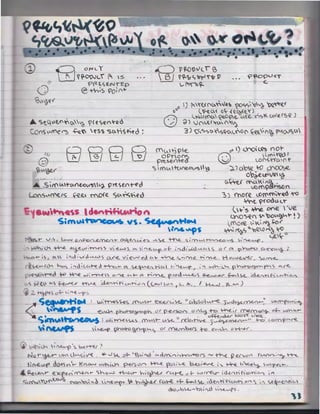 PRESENTED
SEQUENTIALLY OR ALL AT ONCE?
ONLY
PRODUCT A IS
PRESENTED
@ this point
...
PRODUCT B
PRESENTED
LATER
...
PRODUCT
Buyer
1) Alternatives possibly better
(FEAR OF REGRET)
(normal people are risk averse)
2) Uncertainty
3) Dissatisfaction feeling prevail
▲ Sequentially presented
consumers feel less satisfied!
A B C D
multiple
options
presented
simultaneously
1) choices not
limited/
constraint
2) able to choose
objectively
after making
comparison
3) more committed to
the product
(it's the one I've
chosen & bought!)
(more liking for
things belong to
self
Buyer
▲ Simultaneously presented
consumers feel more satisfied
Eyewitness Identification
Simultaneous vs. Sequential
lineups
law enforcement agencies use the simultaneous lineup,
in which the eyewitness views a lineup of individuals or a photo array;
that is, all individuals are viewed at the same time. However, some
research has indicated that a sequential lineup, in which photographs are
presented to the witness one at a time, produces fewer false identifications
as well as fewer true identifications
2 types of lineups
Sequential
lineups
: witnesses must exercise "absolute judgement", comparing
each photograph or person only to their memory of what
offender looks like
Simultaneous
lineups
: witnesses must use "relative judgement" to compare
lineup photographs or members to each other.
Which lineup's better?
the person running the
lineup doesn't know which person the police believe is the likely suspect.
Recent experiment show that higher rate of correct identifications in
simultaneous nonblind lineups & higher rate of false identifications in sequential
double-blind lineups.
33